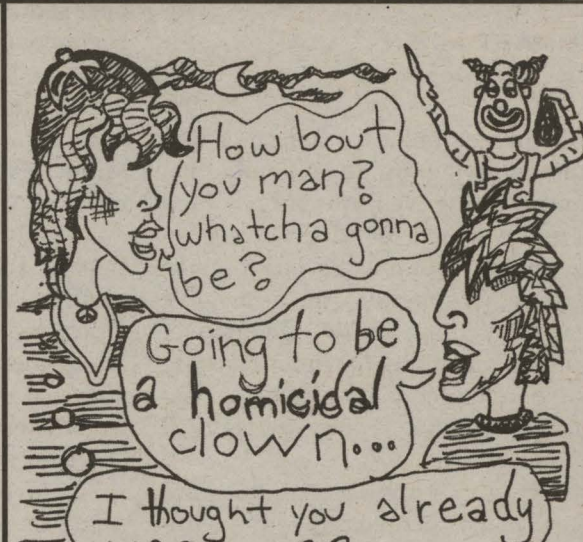 How bout
you man?
whatcha gonna
be?
Going to be
a homicidal
clown...
I thought you already